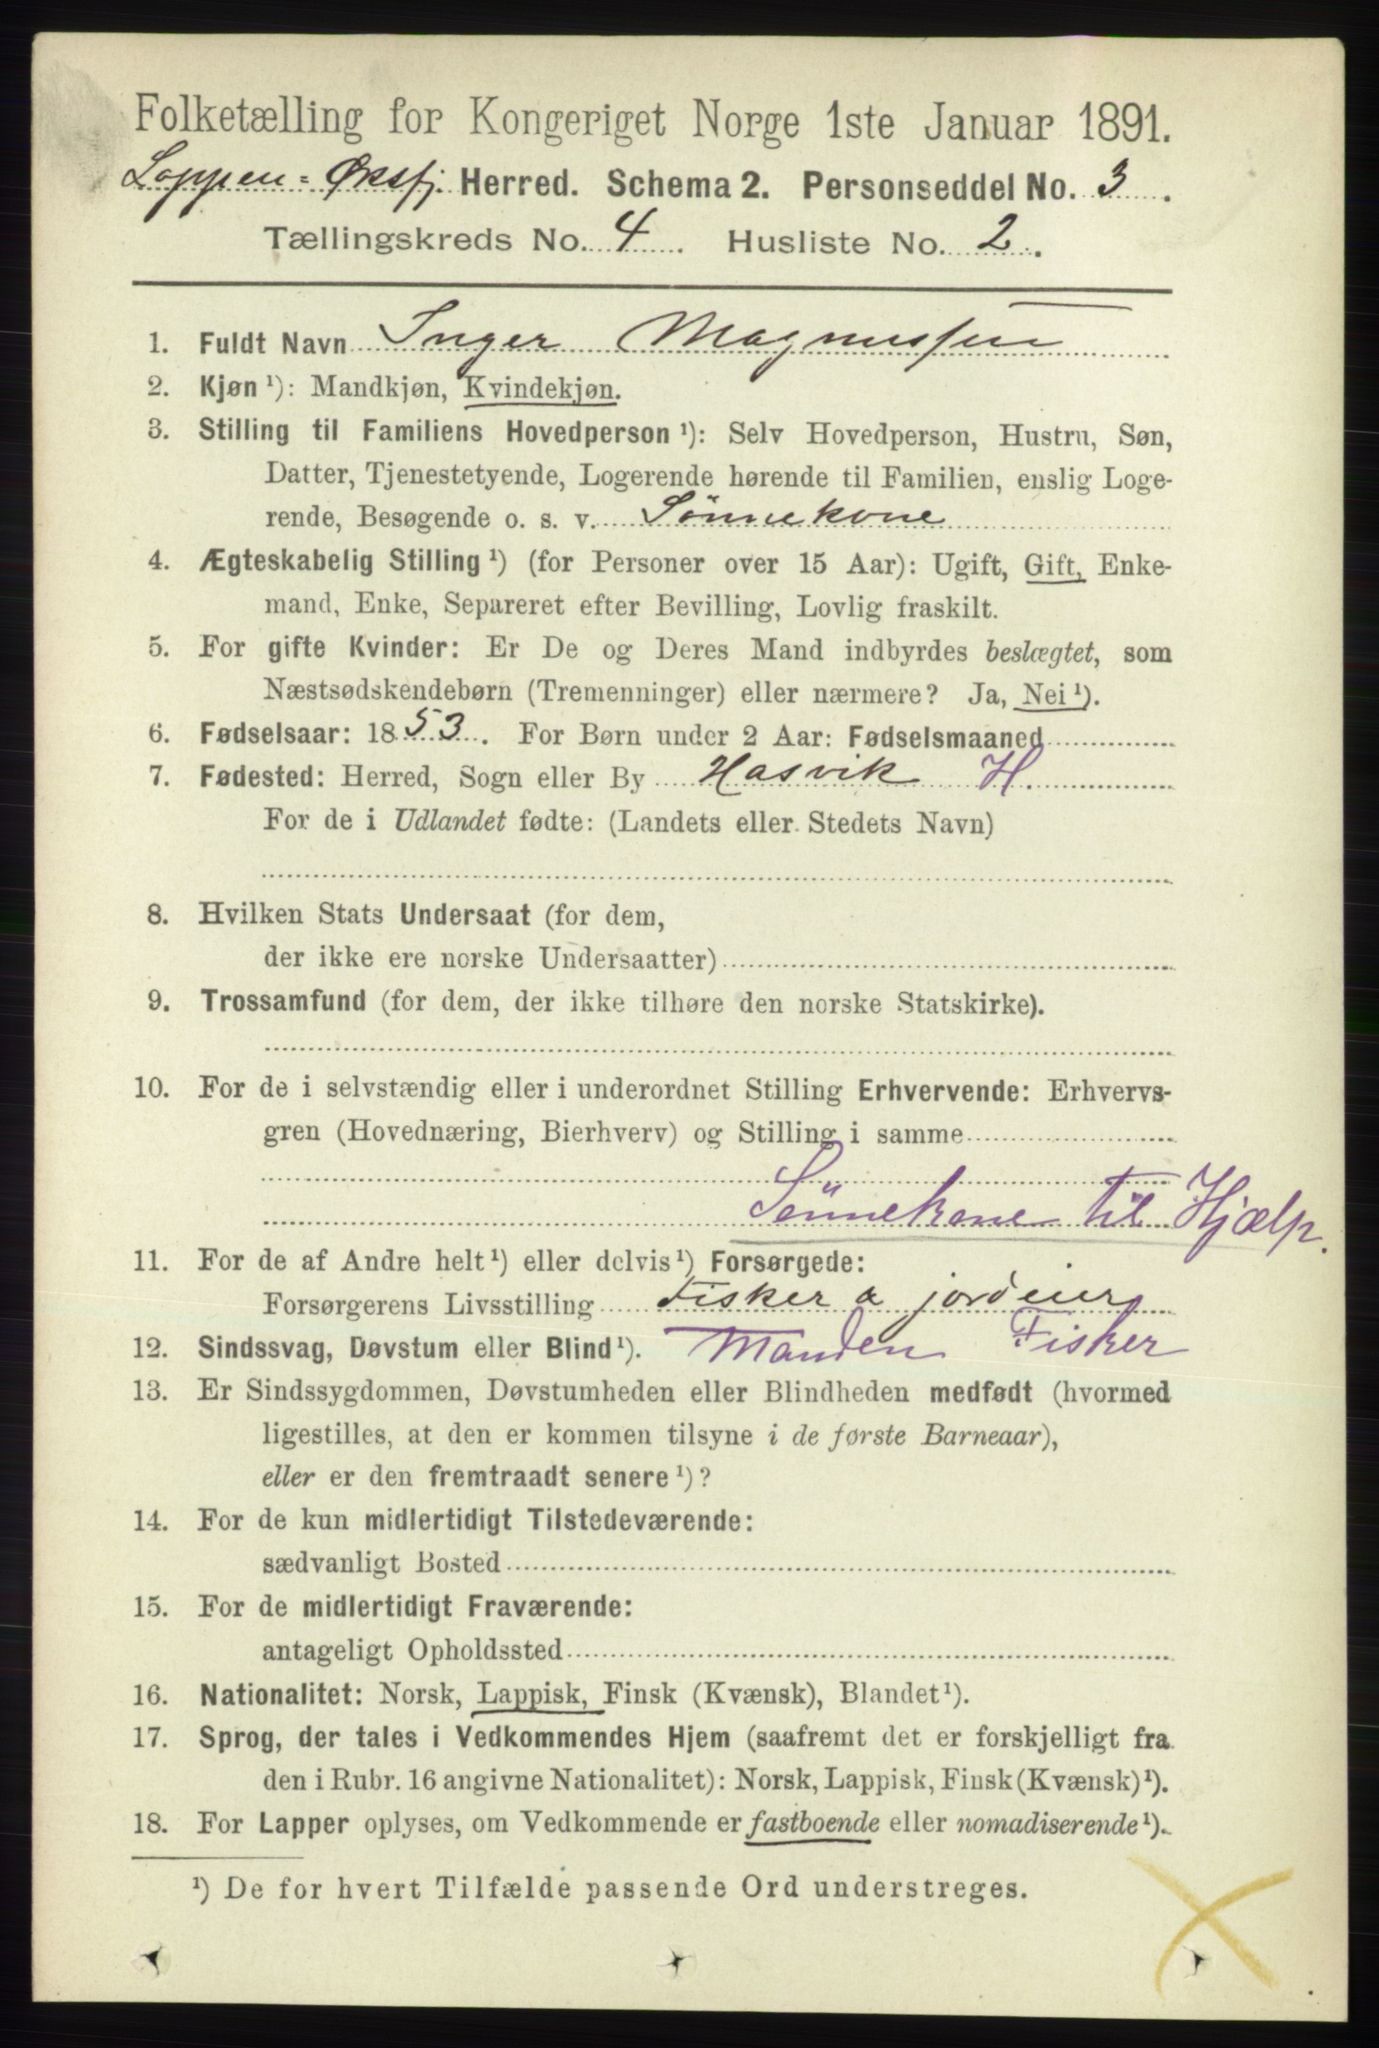 Folketælling for Kongeriget Norge 1ste Januar 1891.
Loppen=Øksfj. Herred. Schema 2. Personseddel No. 3.
Tællingskreds No. 4. Husliste No. 2.
1. Fuldt Navn Inger Magnussen
2. Kjøn ¹): Mandkjøn, Kvindekjøn.
3. Stilling til Familiens Hovedperson ¹): Selv Hovedperson, Hustru, Søn,
Datter, Tjenestetyende, Logerende hørende til Familien, enslig Loge-
rende, Besøgende o. s. v. Sønnekone
4. Ægteskabelig Stilling ¹) (for Personer over 15 Aar): Ugift, Gift, Enke-
mand, Enke, Separeret efter Bevilling, Lovlig fraskilt.
5. For gifte Kvinder: Er De og Deres Mand indbyrdes beslægtet, som
Næstsødskendebørn (Tremenninger) eller nærmere? Ja, Nei ¹).
6. Fødselsaar: 1853. For Børn under 2 Aar: Fødselsmaaned
7. Fødested: Herred, Sogn eller By Hasvik H.
For de i Udlandet fødte: (Landets eller Stedets Navn)
8. Hvilken Stats Undersaat (for dem,
der ikke ere norske Undersaatter)
9. Trossamfund (for dem, der ikke tilhøre den norske Statskirke).
10. For de i selvstændig eller i underordnet Stilling Erhvervende: Erhvervs-
gren (Hovednæring, Bierhverv) og Stilling i samme
Sönnekone til Hjælp.
11. For de af Andre helt ¹) eller delvis ¹) Forsørgede:
Forsørgerens Livsstilling Fisker & jordeier
12. Sindssvag, Døvstum eller Blind ¹). Manden Fisker
13. Er Sindssygdommen, Døvstumheden eller Blindheden medfødt (hvormed
ligestilles, at den er kommen tilsyne i de første Barneaar),
eller er den fremtraadt senere ¹)?
14. For de kun midlertidigt Tilstedeværende:
sædvanligt Bosted
15. For de midlertidigt Fraværende:
antageligt Opholdssted
16. Nationalitet: Norsk, Lappisk, Finsk (Kvænsk), Blandet ¹).
17. Sprog, der tales i Vedkommendes Hjem (saafremt det er forskjelligt fra
den i Rubr. 16 angivne Nationalitet): Norsk, Lappisk, Finsk (Kvænsk) ¹).
18. For Lapper oplyses, om Vedkommende er fastboende eller nomadiserende ¹).
¹) De for hvert Tilfælde passende Ord understreges.